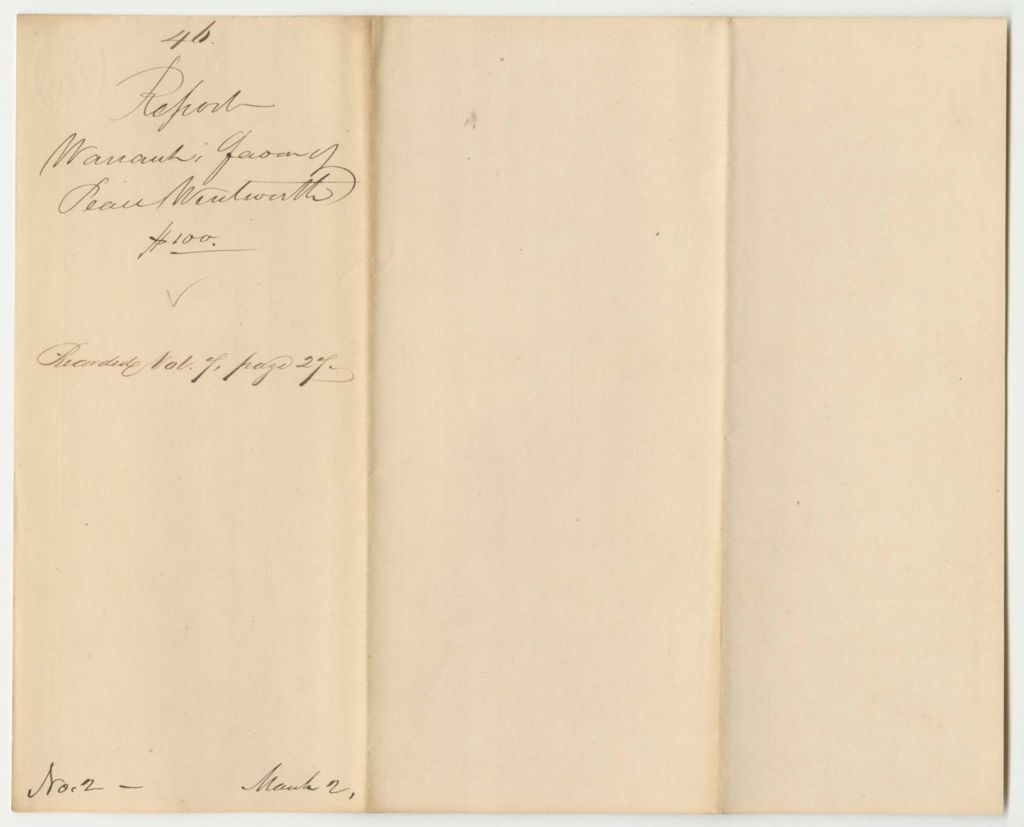 46.
Report
Warrant in favor of
Peace Wentworth
$100.
Recorded Vol. 7, page 27-
No. 2 -
March 2,